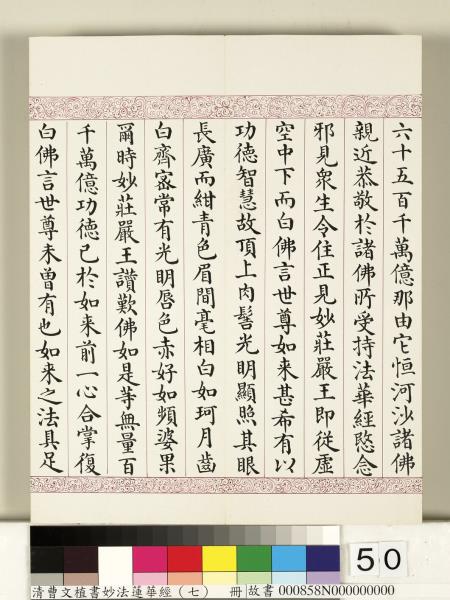 六十五百千萬億那由它恒河沙諸佛
親近恭敬於諸佛所受持法華經愍念
邪見衆生令住正見妙莊嚴王即從虛
空中下而白佛言世尊如来甚希有以
功德智慧故頂上肉髻光明顯照其眼
長廣而紺青色眉間毫相白如珂月齒
白齊宻常有光明唇色赤好如頻婆果
爾時妙莊嚴王讚歎佛如是等無量百
千萬億功德已於如来前一心合掌復
白佛言世尊未曾有也如来之法具足
50
清曹文植書妙法蓮華經(七) 冊 故書 000858N000000000